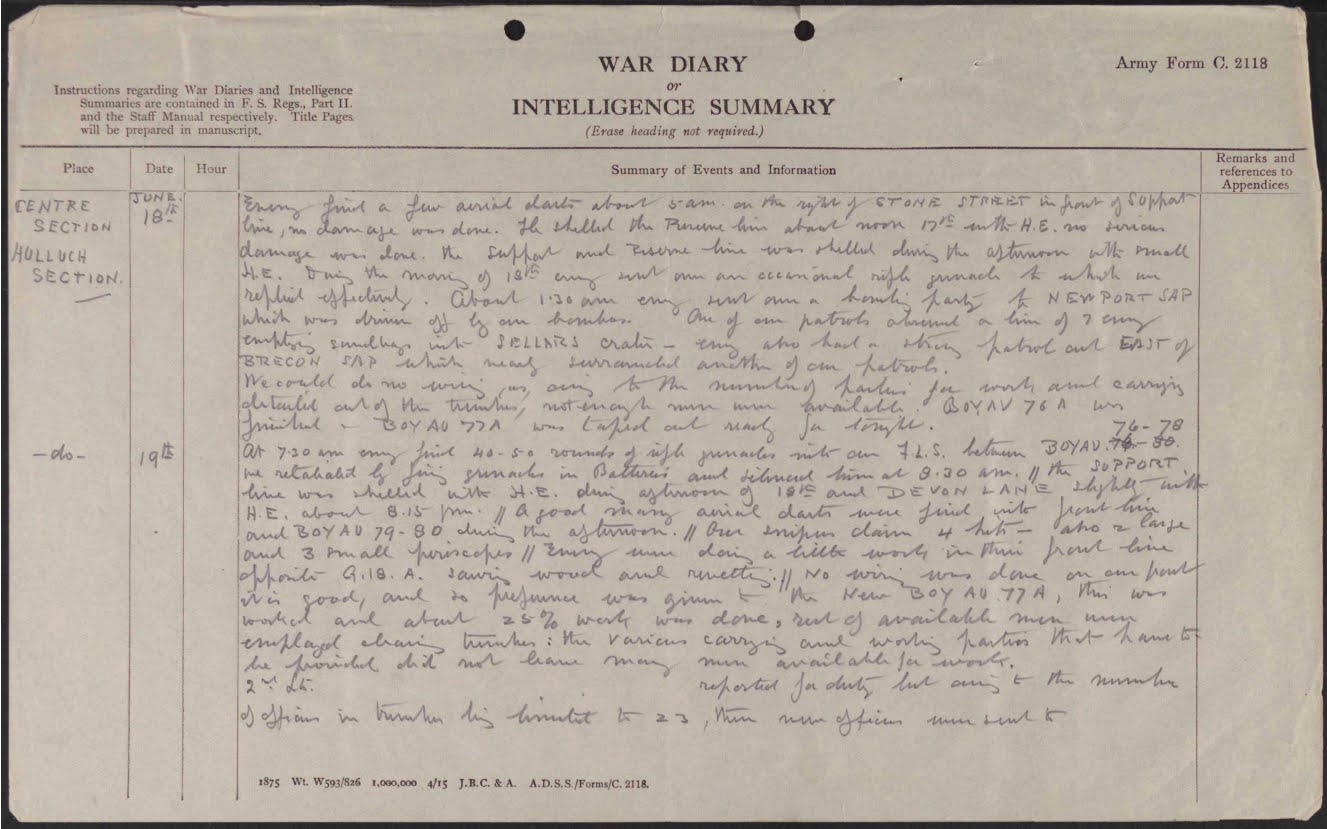 WAR DIARY
or
INTELLIGENCE SUMMARY
(Erase heading not required.)
Army Form C. 2118
Instructions regarding War Diaries and Intelligence
Summaries are contained in F. S. Regs., Part II.
and the Staff Manual respectively. Title Pages
will be prepared in manuscript.
Place
Date
Hour
Summary of Events and Information
Remarks and
references to
Appendices
CENTRE
SECTION
HULLUCH
SECTION.
JUNE.
18th
Enemy fired a few aerial darts about 5 am. on the right of STONE STREET in front of Support
line, no damage was done. He shelled the Reserve line about noon 17th with H.E. no serious
damage was done. The Support and Reserve line was shelled during the afternoon with small
H.E. During the morning of 18th enemy sent over an occasional rifle grenade to which we
replied effectively. About 1.30 am enemy sent over a bombing party to NEWPORT SAP
which was driven off by our bombers. One of our patrols observed a line of 7 enemy
emptying sandbags into SELLARS crater - enemy also had a strong patrol out EAST of
BRECON SAP which nearly surrounded another of our patrols.
We could do no wiring as, owing to the number of parties for work and carrying
detailed out of the trenches, not enough men were available. BOYAU 76 A was
finished - BOYAU 77A was taped out ready for tonight.
-do-
19th
At 7.30 am enemy fired 40-50 rounds of rifle grenades into our F.L.S. between BOYAU 76-78
we retaliated by firing grenades in Batteries and silenced him at 8.30 am. // The SUPPORT
line was shelled with H.E. during afternoon of 18th and DEVON LANE slightly with
H.E. about 8.15 pm. // A good many aerial darts were fired into front line
and BOYAU 79-80 during the afternoon. // Our snipers claim 4 hits - also 2 large
and 3 small periscopes // Enemy were doing a little work in their front line
opposite G.18.A. sawing wood and revetting. // No wiring was done on our front
it is good, and so preference was given to the New BOYAU 77A, this was
worked and about 25% work was done, rest of available men were
employed clearing trenches: the various carrying and working parties that have to
be provided did not leave many men available for work.
2nd Lt. reported for duty but owing to the number
of officers in trenches being limited to 23, these new officers were sent to
1875 Wt. W593/826 1,000,000 4/15 J.B.C. & A. A.D.S.S./Forms/C. 2118.